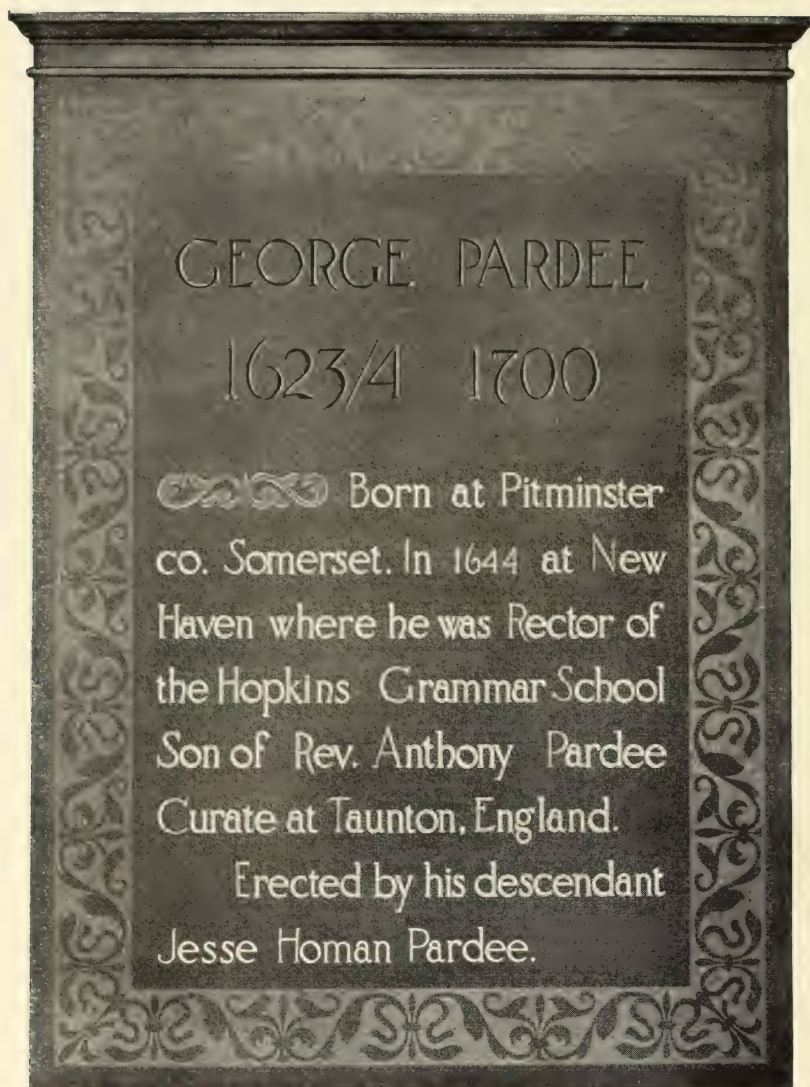 GEORGE PARDEE
1623/4 1700
Born at Pitminster
co. Somerset. In 1644 at New
Haven where he was Rector of
the Hopkins Grammar School
Son of Rev. Anthony Pardee
Curate at Taunton, England.
Erected by his descendant
Jesse Homan Pardee.